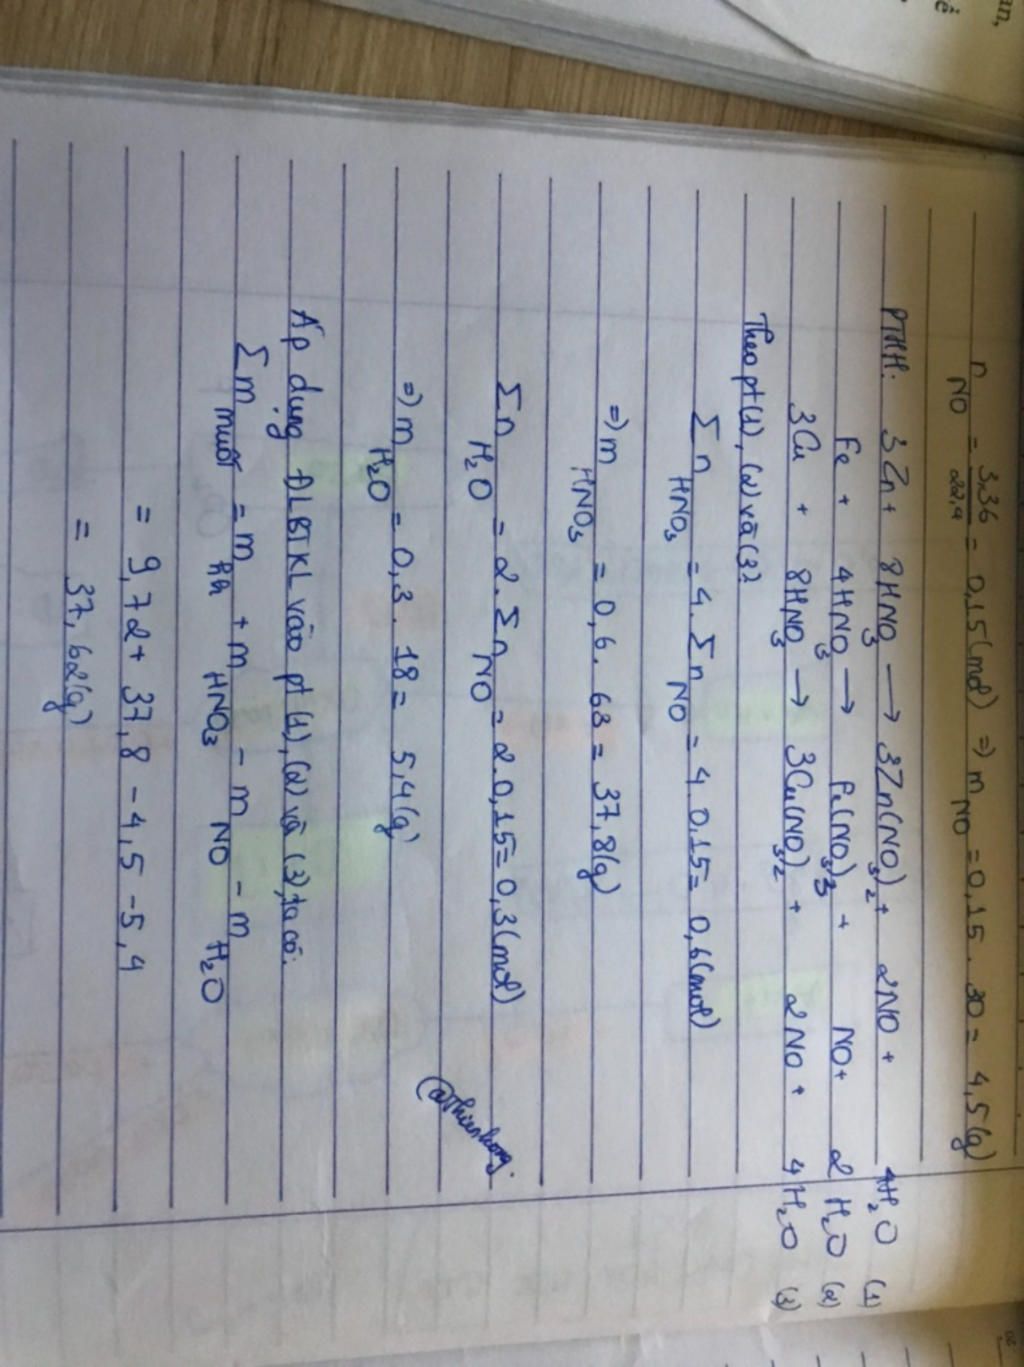 n NO = 3,36 / 22,4 = 0,15(mol) => m NO = 0,15 . 30 = 4,5(g)
PTHH: 3Zn + 8HNO3 ⟶ 3Zn(NO3)2 + 2NO + 4H2O (1)
Fe + 4HNO3 ⟶ Fe(NO3)3 + NO + 2H2O (2)
3Cu + 8HNO3 → 3Cu(NO3)2 + 2NO + 4H2O (3)
Theo pt (1), (2) và (3):
Σn HNO3 = 4. Σn NO = 4 . 0,15 = 0,6(mol)
=> m HNO3 = 0,6. 63 = 37,8(g)
Σn H2O = 2. Σn NO = 2. 0,15 = 0,3(mol)
=> m H2O = 0,3. 18 = 5,4(g)
Áp dụng ĐLBTKL vào pt (1), (2) và (3), ta có:
Σm muối = m hh + m HNO3 - m NO - m H2O
= 9,72 + 37,8 - 4,5 - 5,4
= 37,62(g)